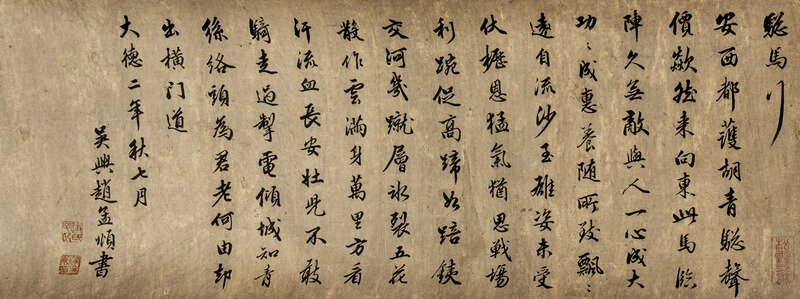 驄馬行
安西都護胡青驄聲
價歘然来向東此馬临
陣久無敵與人一心成大
功〻成惠養随所致飄〻
遠自流沙至雄姿未受
伏櫪恩猛氣猶思戰場
利踠促高蹄如踣鐵
交河幾蹴層冰裂五花
散作雲滿身萬里方看
汗流血長安壯兒不敢
騎走過掣電傾城知青
絲絡頭為君老何由却
出橫門道
大德二年秋七月
吳興趙孟頫書